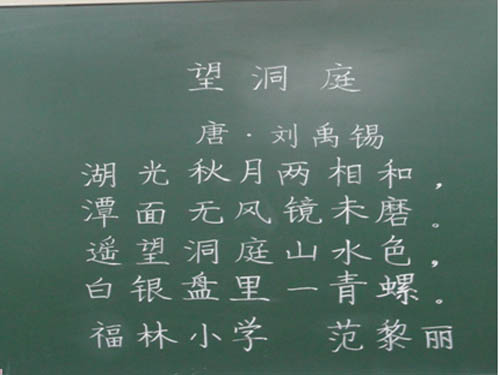 望洞庭
唐·刘禹锡
湖光秋月两相和，
潭面无风镜未磨。
遥望洞庭山水色，
白银盘里一青螺。
福林小学 范黎丽